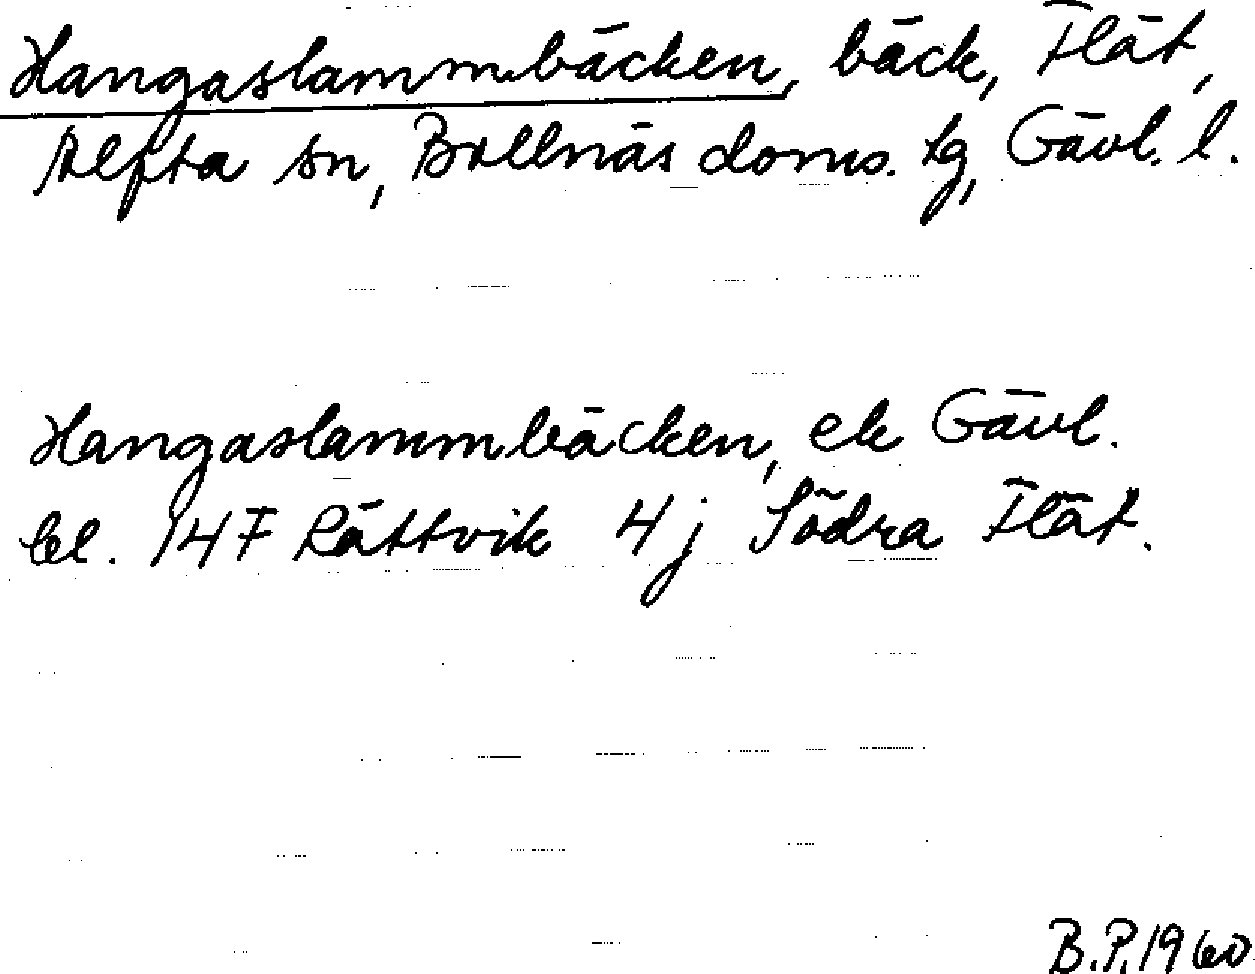 Hangaslammbäcken, bäck, Flät,
Alfta sn, Bollnäs doms. tg, Gävl. l.
Hangaslammbäcken, ek Gävl.
bl. 14F Rättvik 4j Södra Flät.
B.P. 1960